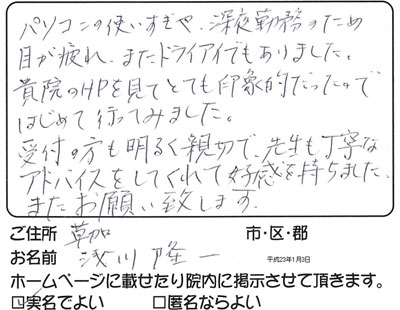 パソコンの使いすぎや、深夜勤務のため
目が疲れ、またドライアイでもありました。
貴院のHPを見てとても印象的だったので
はじめて行ってみました。
受付の方も明るく親切で、先生も丁寧な
アドバイスをしてくれて好感を持ちました。
またお願い致します。
ご住所 草加 市・区・郡
お名前 浅川 隆一
平成23年1月3日
ホームページに載せたり院内に掲示させて頂きます。
☑実名でよい □匿名ならよい